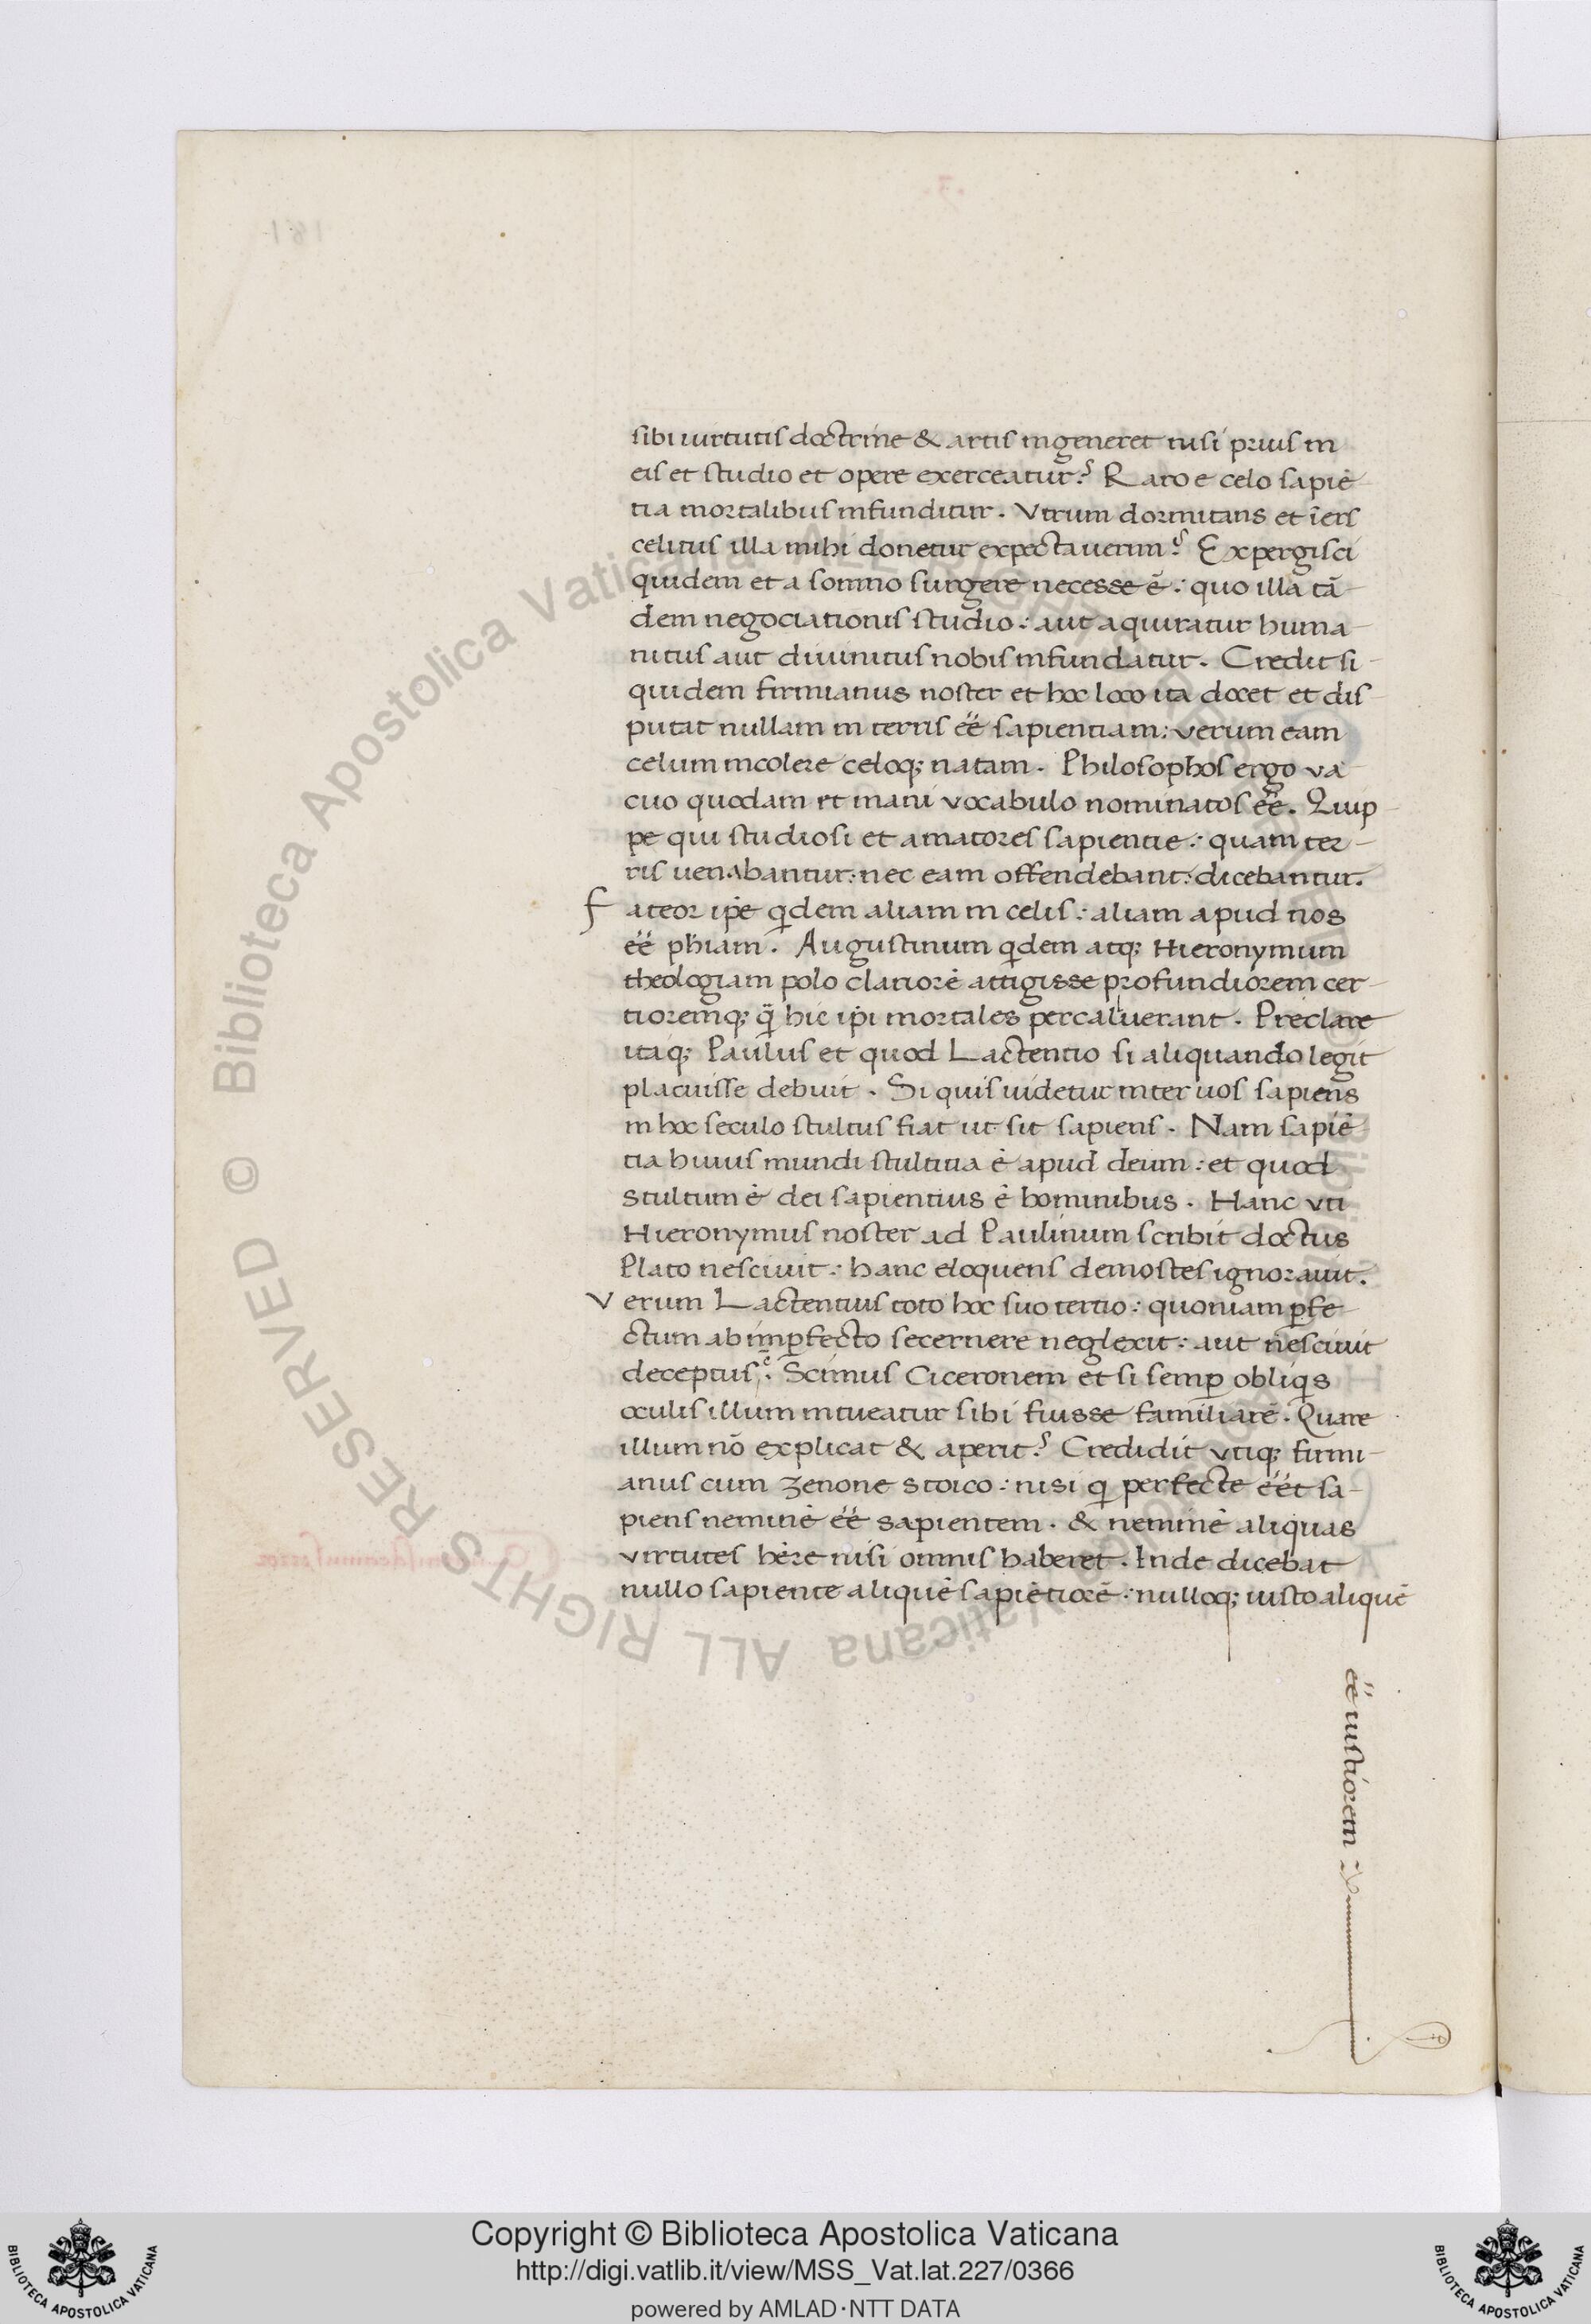 sibi uirtutis doctrine & artis ingeneret nisi prius in
eis et studio et opere exerceatur? Raro e celo sapiē
tia mortalibus infunditur. Vtrum dormitans et īers
celitus illa mihi donetur expectauerim? Expergisci
quidem et a somno surgere necesse ē: quo illa tā
dem negociationis studio: aut aquiratur huma
nitus aut diuinitus nobis infundatur. Credit si
quidem firmianus noster et hoc loco ita docet et dis
putat nullam in terris eē sapientiam: verum eam
celum incolere celoq; natam. Philosophos ergo va
cuo quodam et inani vocabulo nominatos eē. Quip
pe qui studiosi et amatores sapientie: quam ter
ris uenabantur: nec eam offendebant: dicebantur.
fateor ip̄e qͥdem aliam in celis: aliam apud nos
eē ph̄iam. Augustinum qͥdem atq; Hieronymum
theologiam polo clariorē attigisse profundiorem cer
tioremq; q̄ hic ip̄i mortales percaluerant. Preclare
itaq; Paulus et quod Lactentio si aliquando legit
placuisse debuit. Si quis uidetur inter uos sapiens
in hoc seculo stultus fiat ut sit sapiens. Nam sapiē
tia huius mundi stultitia ē apud deum: et quod
stultum ē dei sapientius ē hominibus. Hanc vti
Hieronymus noster ad Paulinum scribit doctus
Plato nesciuit: hanc eloquens demostes ignorauit.
Verum Lactentius toto hoc suo tertio: quoniam ꝑfe
ctum ab imꝑfecto secernere neglexit: aut nesciuit
deceptus ē. Scimus Ciceronem et si semꝑ obliqͥs
oculis illum intueatur sibi fuisse familiarē. Quare
illum nō explicat & aperit? Credidit vtiq; firmi
anus cum zenone stoico: nisi qͥ perfecte eēt sa
piens neminē eē sapientem. & neminē aliquas
virtutes hēre nisi omnis haberet. Inde dicebat
nullo sapiente aliquē sapiētiorē: nulloq; iusto aliquē
eē iustiorem
Copyright © Biblioteca Apostolica Vaticana
http://digi.vatlib.it/view/MSS_Vat.lat.227/0366
powered by AMLAD·NTT DATA
BIBLIOTECA APOSTOLICA VATICANA
BIBLIOTECA APOSTOLICA VATICANA
© Biblioteca Apostolica Vaticana ALL RIGHTS RESERVED